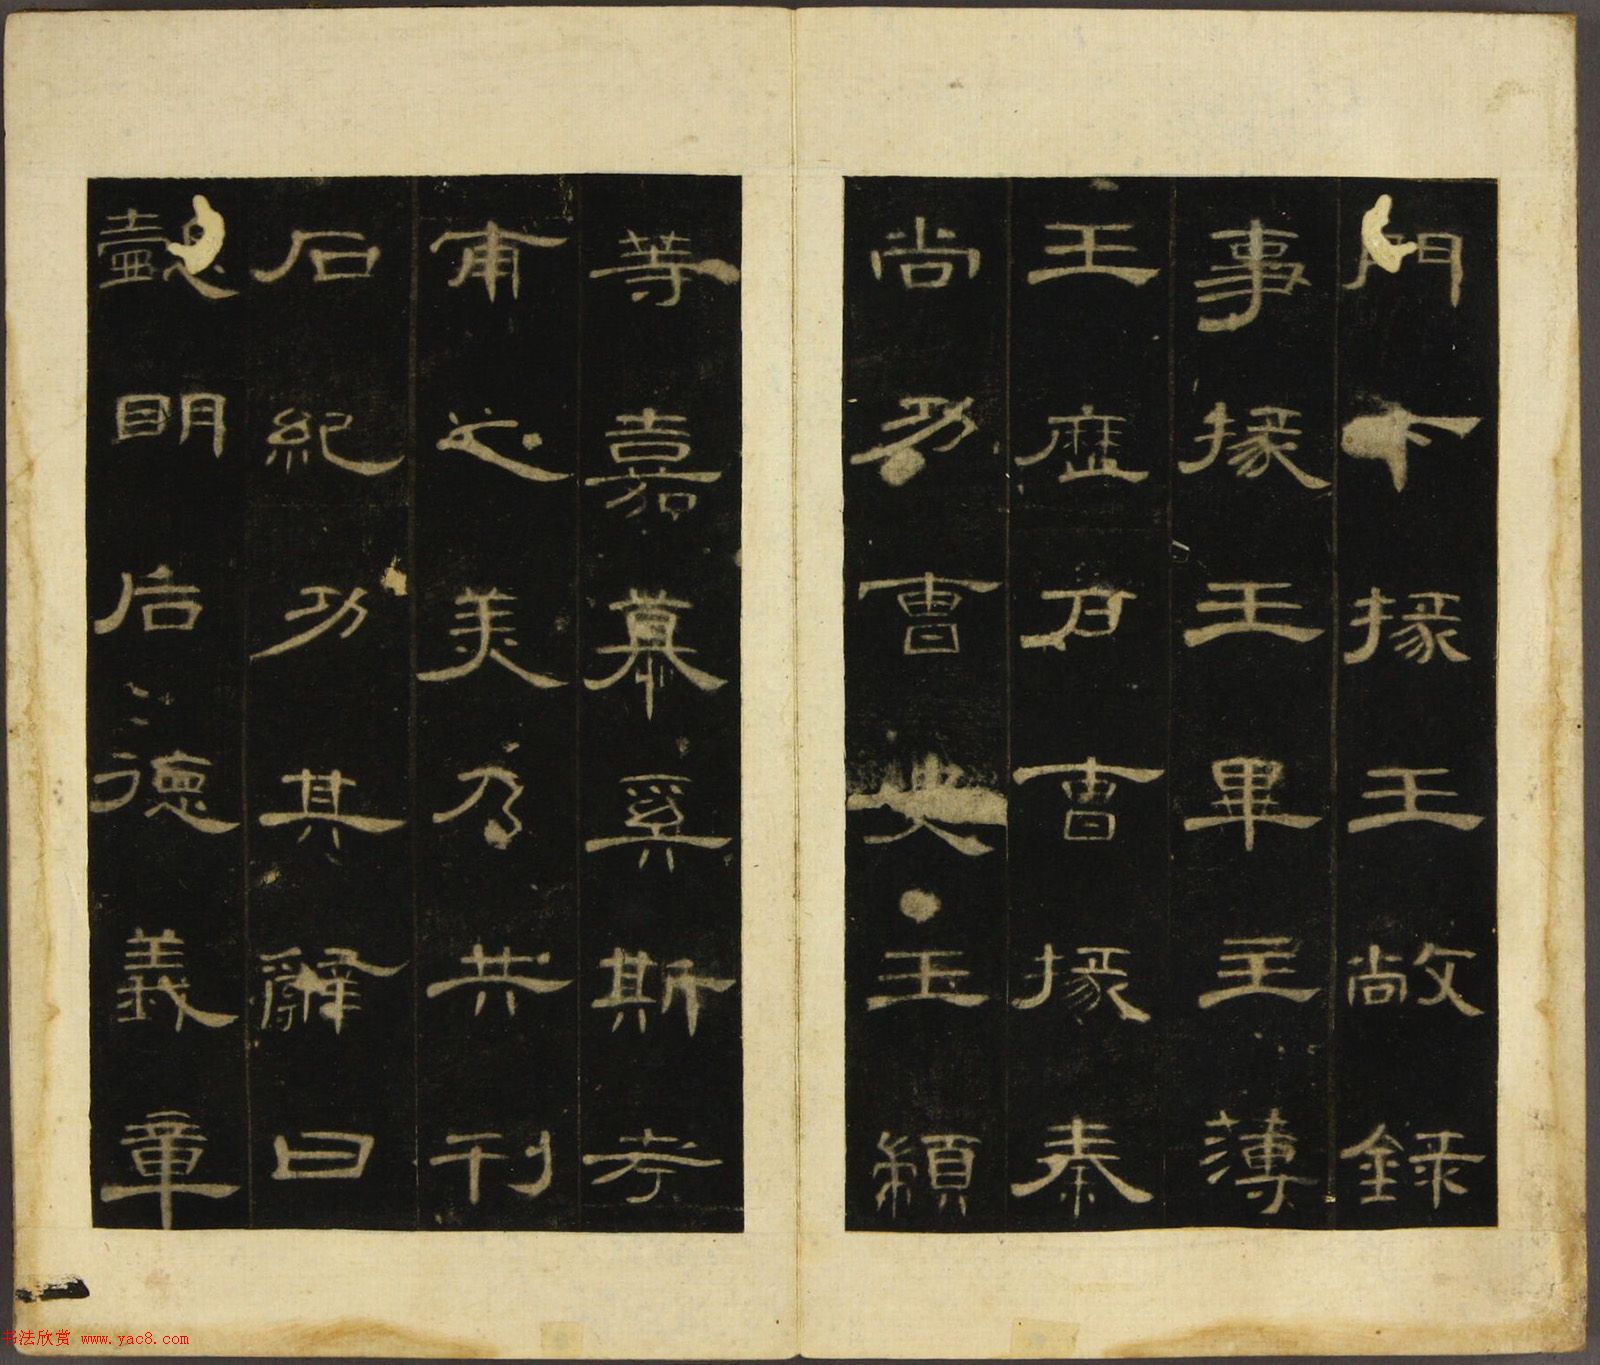 門下掾王敞錄
事掾王畢主薄
王歷戶曹掾秦
尚功曹史王顓
等嘉慕奚斯考
甫之美乃共刊
石紀功其辭曰
懿明后德義章
书法欣赏 www.yac8.com